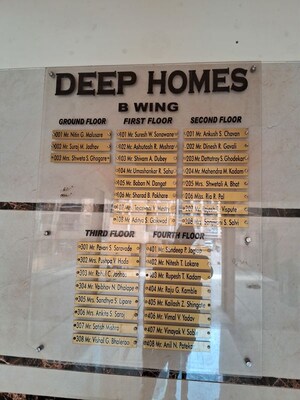 DEEP HOMES
B WING
GROUND FLOOR
001 Mr. Nitin G. Malusare
002 Mr. Suraj M. Jadhav
003 Mrs. Shweta S. Ghogare
FIRST FLOOR
101 Mr. Suresh W. Sonawane
102 Mr. Ashutosh R. Mishra
103 Mr. Shivam A. Dubey
104 Mr. Umashankar R. Sahu
105 Mr. Baban N. Dangat
106 Mr. Sharad B. Pokhare
108 Mr. Aditya S. Gaikwad
SECOND FLOOR
201 Mr. Ankush S. Chavan
202 Mr. Dinesh K. Gavali
203 Mr. Dattatray S. Ghodekar
204 Mr. Mahendra M. Kadam
205 Mrs. Shwetali A. Bhat
206 Miss. Ria R. Pal
THIRD FLOOR
301 Mr. Pavan S. Saravade
302 Mrs. Pushpa V. Hode
304 Mr. Vaibhav N. Dhalape
305 Mrs. Sandhya S. Lipare
306 Mrs. Ankita S. Saroj
307 Mr. Satish Mishra
308 Mr. Vishal G. Bhalerao
FOURTH FLOOR
401 Mr. Sundeep P.
402 Mr. Nitesh T. Lokare
403 Mr. Rupesh T. Kadam
404 Mr. Raju G. Kamble
405 Mr. Kailash Z.
406 Mr. Vimal V. Yadav
407 Mr. Vinayak V.
408 Mr. Anil N.